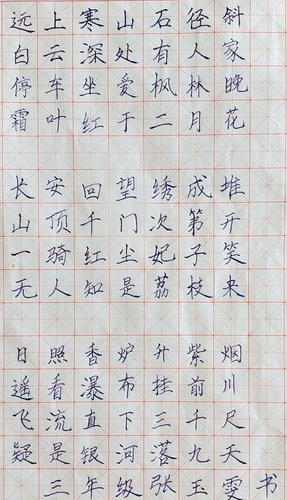 远上寒山石径斜
白云深处有人家
停车坐爱枫林晚
霜叶红于二月花
长安回望绣成堆
山顶千门次第开
一骑红尘妃子笑
无人知是荔枝来
日照香炉升紫烟
遥看瀑布挂前川
飞流直下三千尺
疑是银河落九天
三年级张玉雯书